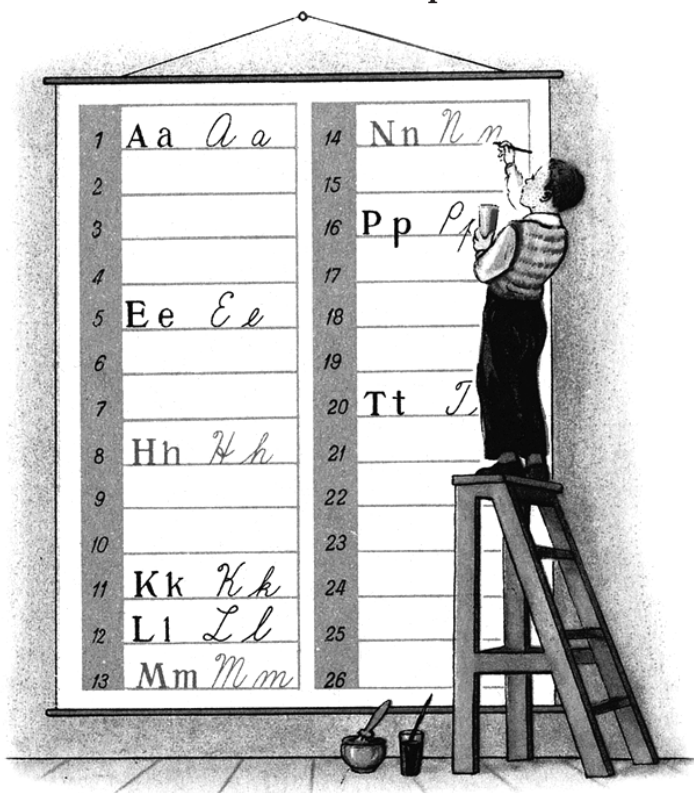 1 Aa A a
2
3
4
5 Ee E e
6
7
8 Hh H h
9
10
11 Kk K k
12 Ll L l
13 Mm M m
14 Nn N n
15
16 Pp P p
17
18
19
20 Tt T
21
22
23
24
25
26